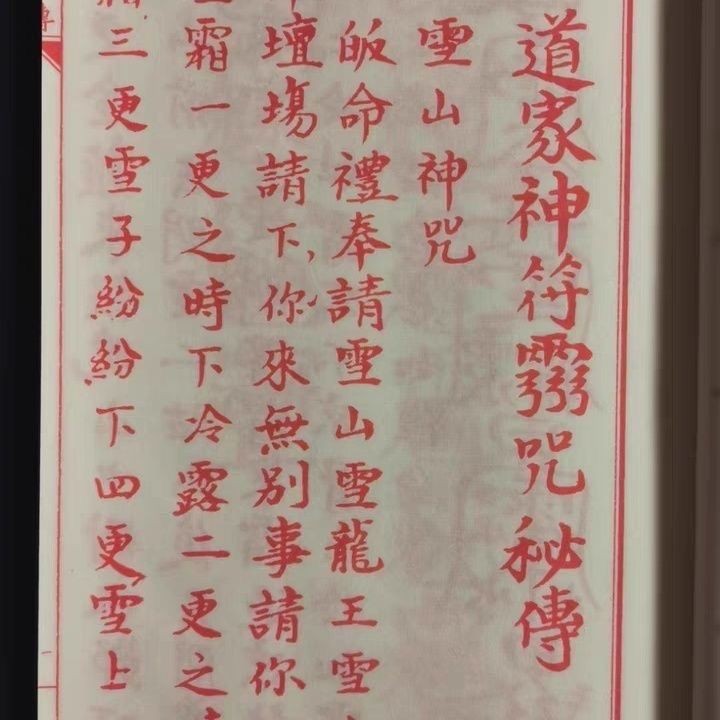 道家神符靈咒秘傳
雪山神咒
皈命禮奉請雪山雪龍王雪
壇場請下你來無別事請你
霜一更之時下冷露二更之
三更雪子紛紛下四更雪上